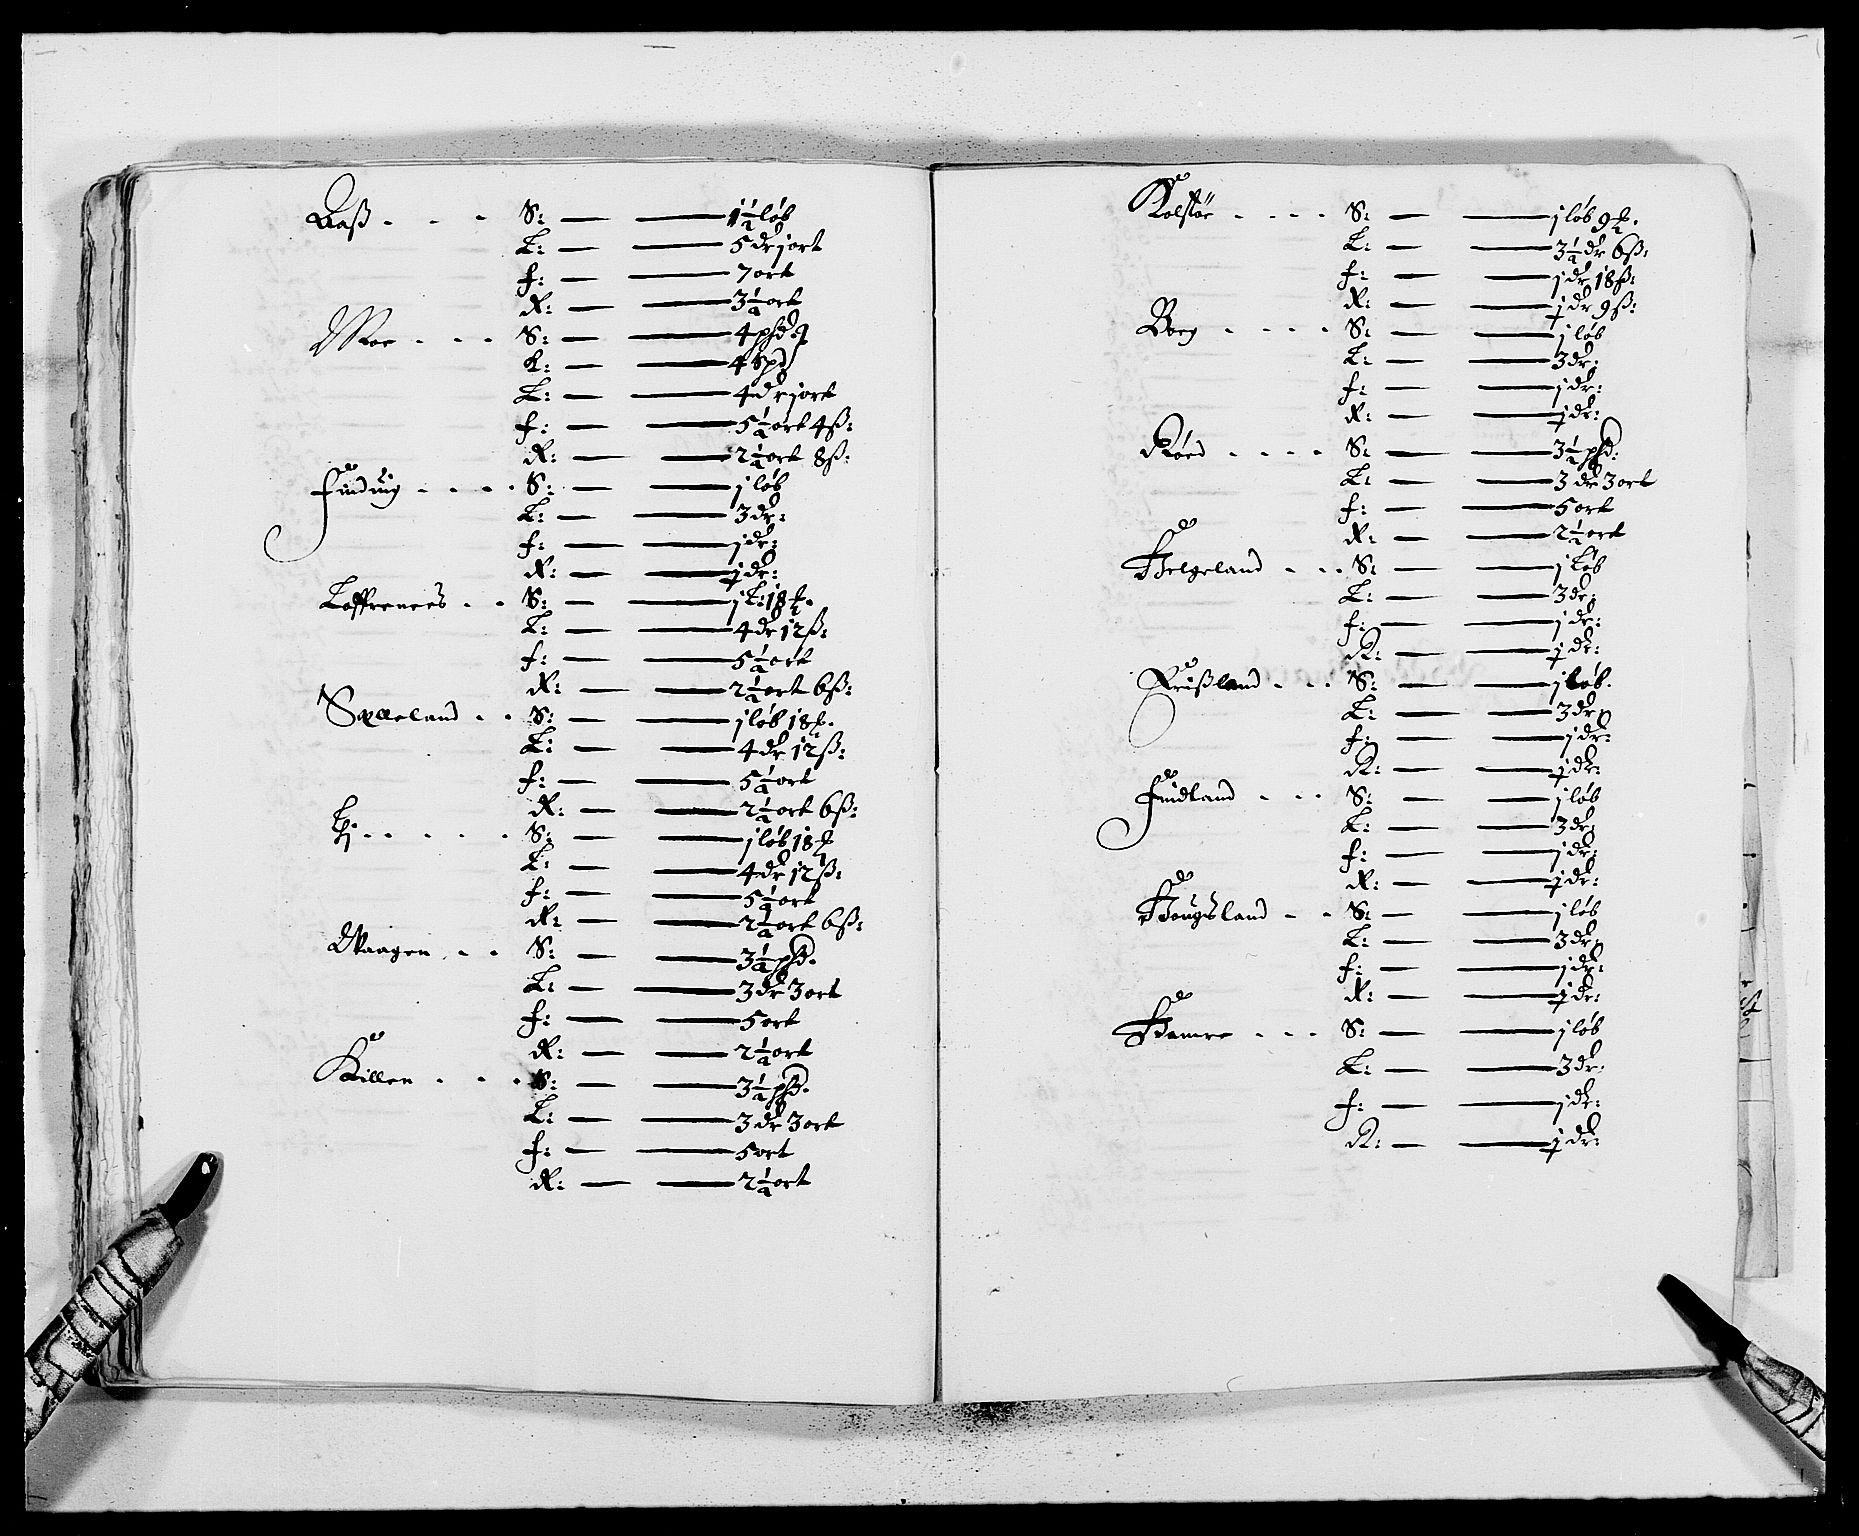 Aaß - - - S: — — 1½ løb
L: — — 5 dr j ort
f: — — 7 ort
R: — — 3½ ort
Moe - - - S: — — 4 pßd
K: — — 4 Spd
L: — — 4 dr j ort
f: — — 5½ ort 4 ß:
R: — — 2½ ort 8 ß:
Finding - - - - S: — — j løb
L: — — 3 dr:
f: — — j dr:
R: — — ½ dr:
Loffrenees - - S: — — j L: 18
L: — — 4 dr 12 ß:
f: — — 5½ ort
R: — — 2½ ort 6 ß:
Sæleland - - S: — — j løb 18
L: — — 4 dr 12 ß:
f: — — 5½ ort
R: — — 2½ ort 6 ß:
S: — — j løb 18
L: — — 4 dr 12 ß:
f: — — 5½ ort
R: — — 2½ ort 6 ß:
Waagen - - S: — — 3½ pßd.
L: — — 3 dr 3 ort
f: — — 5 ort
R: — — 2½ ort
Killen - - - S: — — 3½ pßd.
L: — — 3 dr 3 ort
f: — — 5 ort
R: — — 2½ ort
Kolstøe - - - - S: — — j løb 9
L: — — 3½ dr 6 ß:
f: — — j dr 18 ß:
R: — — ½ dr 9 ß:
Borg - - - - S: — — j løb
L: — — 3 dr:
f: — — j dr:
R: — — ½ dr:
Røed - - - - S: — — 3½ pßd:
L: — — 3 dr 3 ort
f: — — 5 ort
R: — — 2½ ort
Helgeland - - - S: — — j løb
L: — — 3 dr:
f: — — j dr:
R: — — ½ dr:
Frißland - - - S: — — j løb.
L: — — 3 dr:
f: — — j dr:
R: — — ½ dr:
Findland - - - S: — — j løb
L: — — 3 dr:
f: — — j dr:
R: — — ½ dr:
Hougsland - - S: — — j løb
L: — — 3 dr:
f: — — j dr:
R: — — ½ dr:
Hamre - - - S: — — j løb
L: — — 3 dr:
f: — — j dr:
R: — — ½ dr: